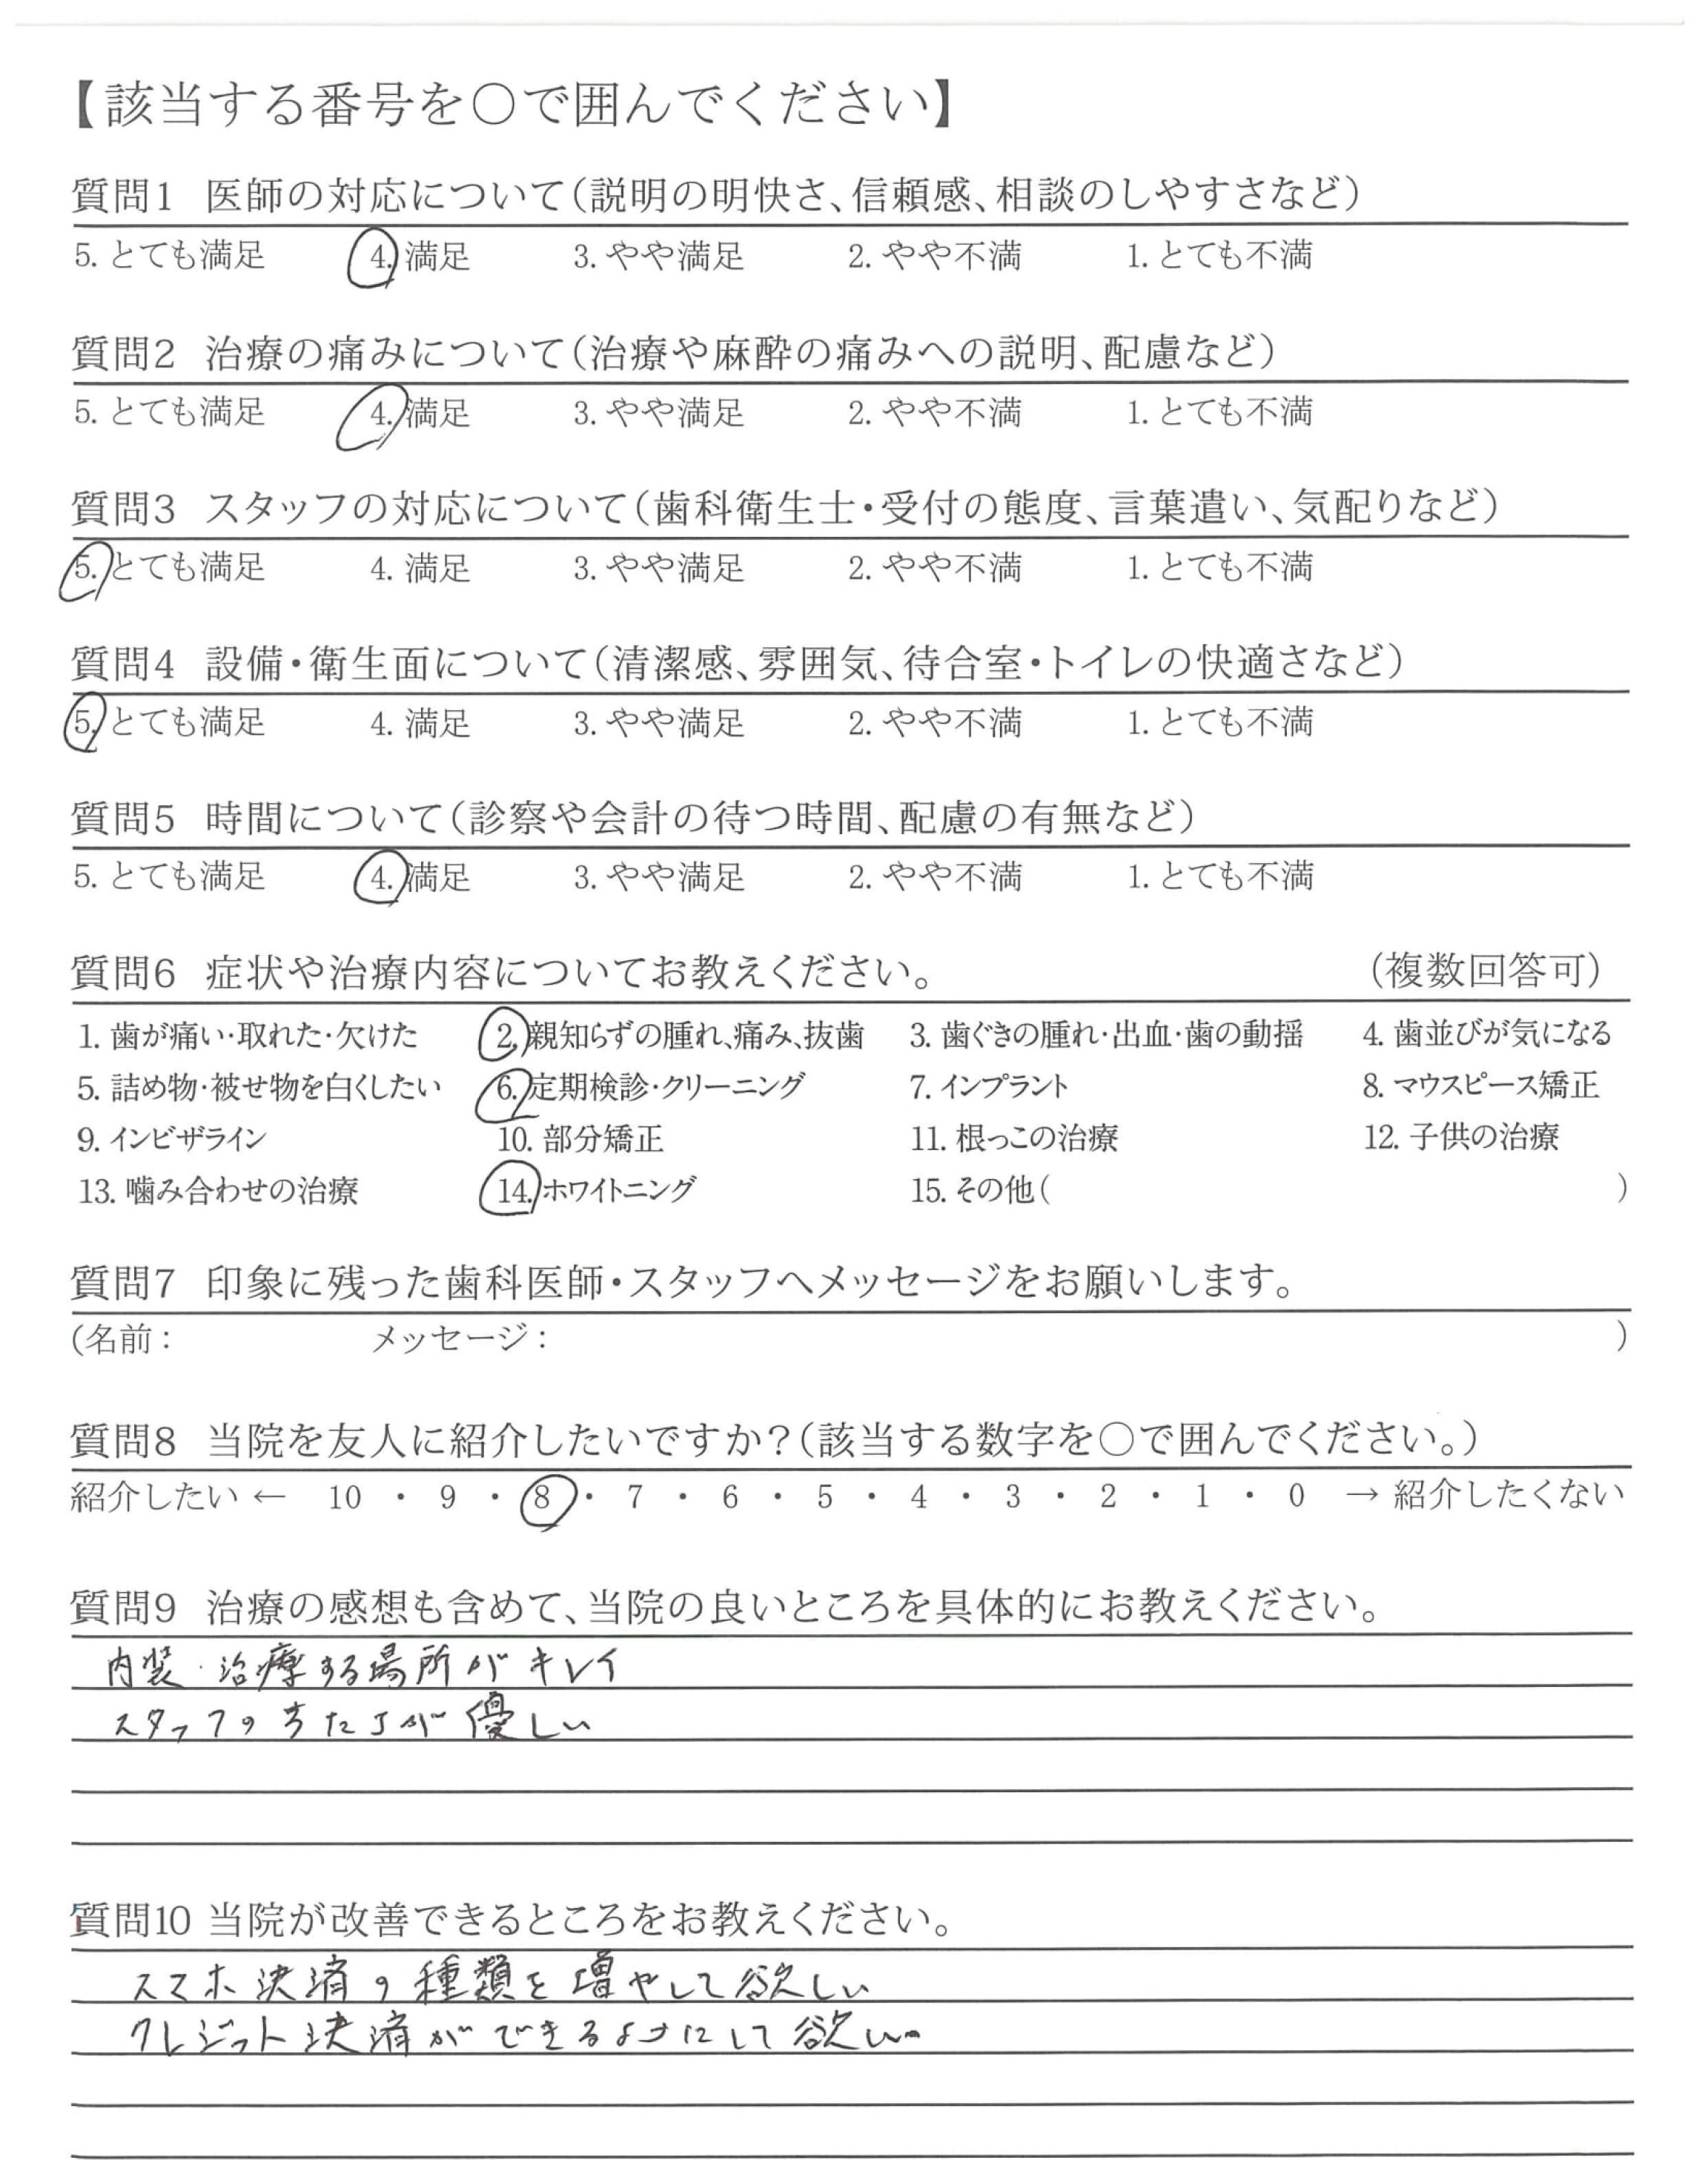 【該当する番号を〇で囲んでください】
質問1 医師の対応について(説明の明快さ、信頼感、相談のしやすさなど)
5. とても満足 4. 満足 3. やや満足 2. やや不満 1. とても不満
質問2 治療の痛みについて(治療や麻酔の痛みへの説明、配慮など)
5. とても満足 4. 満足 3. やや満足 2. やや不満 1. とても不満
質問3 スタッフの対応について(歯科衛生士・受付の態度、言葉遣い、気配りなど)
5. とても満足 4. 満足 3. やや満足 2. やや不満 1. とても不満
質問4 設備・衛生面について(清潔感、雰囲気、待合室・トイレの快適さなど)
5. とても満足 4. 満足 3. やや満足 2. やや不満 1. とても不満
質問5 時間について(診察や会計の待つ時間、配慮の有無など)
5. とても満足 4. 満足 3. やや満足 2. やや不満 1. とても不満
質問6 症状や治療内容についてお教えください。 (複数回答可)
1. 歯が痛い・取れた・欠けた 2. 親知らずの腫れ、痛み、抜歯 3. 歯ぐきの腫れ・出血・歯の動揺 4. 歯並びが気になる
5. 詰め物・被せ物を白くしたい 6. 定期検診・クリーニング 7. インプラント 8. マウスピース矯正
9. インビザライン 10. 部分矯正 11. 根っこの治療 12. 子供の治療
13. 噛み合わせの治療 14. ホワイトニング 15. その他( )
質問7 印象に残った歯科医師・スタッフへメッセージをお願いします。
(名前: メッセージ: )
質問8 当院を友人に紹介したいですか?(該当する数字を〇で囲んでください。)
紹介したい ← 10 ・ 9 ・ 8 ・ 7 ・ 6 ・ 5 ・ 4 ・ 3 ・ 2 ・ 1 ・ 0 → 紹介したくない
質問9 治療の感想も含めて、当院の良いところを具体的にお教えください。
内装・治療する場所がキレイ
スタッフの が優しい
質問10 当院が改善できるところをお教えください。
スマホ決済の種類を増やして欲しい
クレジット決済ができるようにして欲しい。